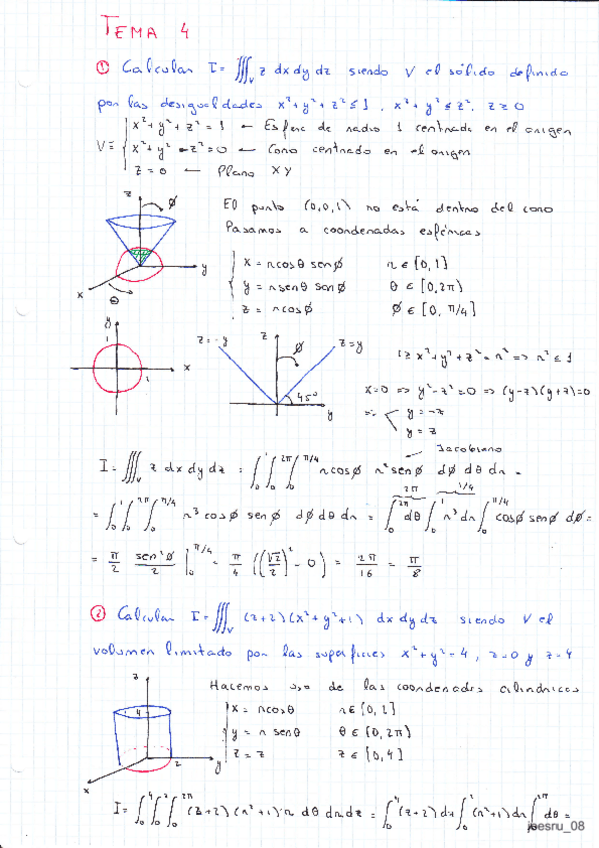 TEMA 4
① Calcular I = ∭_V z dx dy dz siendo V el sólido definido
por las desigualdades x²+y²+z² ≤ 1, x²+y² ≤ z², z ≥ 0
V ≡ { x²+y²+z² = 1 ← Esfera de radio 1 centrada en el origen
x²+y²-z² = 0 ← Cono centrado en el origen
z = 0 ← Plano XY
El punto (0,0,1) no está dentro del cono
Pasamos a coordenadas esféricas
x = r cosθ senφ r ∈ [0,1]
y = r senθ senφ θ ∈ [0,2π)
z = r cosφ φ ∈ [0, π/4]
z φ y x θ
y 1 x 1
z=-y z φ z=y 45° y
x²+y²+z² = r² => r² ≤ 1
x=0 => y²-z²=0 => (y-z)(y+z)=0
y = -z
y = z
Jacobiano
I = ∭_V z dx dy dz = ∫₀¹ ∫₀^2π ∫₀^π/4 r cosφ r² senφ dφ dθ dr =
2π 1/4
= ∫₀¹ ∫₀^2π ∫₀^π/4 r³ cosφ senφ dφ dθ dr = ∫₀^2π dθ ∫₀¹ r³ dr ∫₀^π/4 cosφ senφ dφ =
= π/2 sen²φ/2 |₀^π/4 = π/4 ((√2/2)² - 0) = 2π/16 = π/8
② Calcular I = ∭_V (z+2)(x²+y²+1) dx dy dz siendo V el
volumen limitado por las superficies x²+y² = 4, z=0 y z=4
Hacemos uso de las coordenadas cilíndricas
x = r cosθ r ∈ [0,2]
y = r senθ θ ∈ [0,2π)
z = z z ∈ [0,4]
z 4 2 y x
I = ∫₀⁴ ∫₀² ∫₀^2π (z+2)(r²+1)·r dθ dr dz = ∫₀⁴ (z+2) dz ∫₀² (r²+1) dr ∫₀^2π dθ =
joesru_08